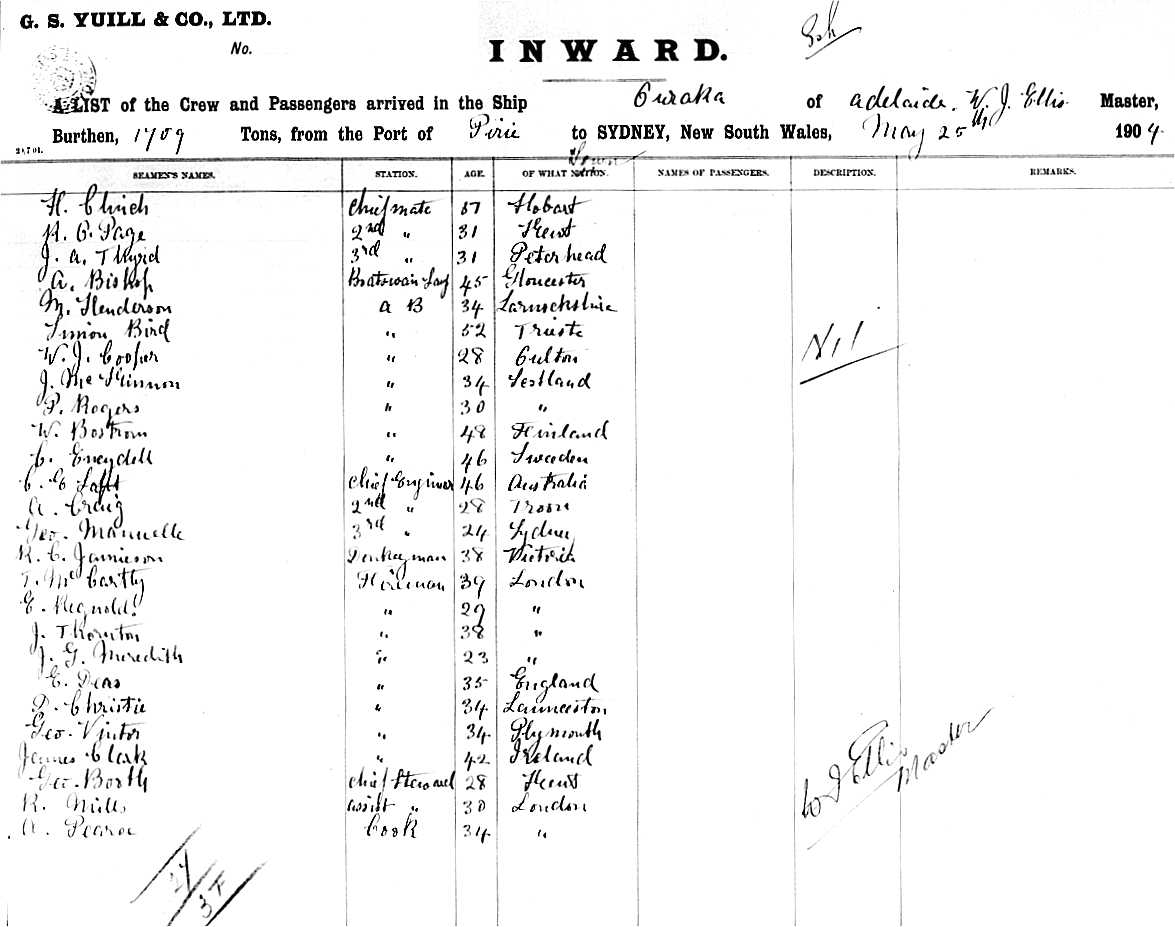 G. S. YUILL & CO., LTD.
No.
INWARD.
A LIST of the Crew and Passengers arrived in the Ship Ouraka of Adelaide, W. J. Ellis Master,
Burthen, 1709 Tons, from the Port of Pirie to SYDNEY, New South Wales, May 25th 1904
Town
SEAMEN'S NAMES. STATION. AGE. OF WHAT NATION. NAMES OF PASSENGERS. DESCRIPTION. REMARKS.
H. Clinch Chief mate 57 Hobart
R. C. Page 2nd " 31 Kent
J. A. 3rd " 31 Peterhead
A. Bishop Boatswain 45 Gloucester
M. Henderson A B 34
Simon Bird " 52 Trieste
W. J. Cooper " 28
J. McKinnon " 34
P. Rogers " 30 "
W. Bostrom " 48 Finland
C. " 46 Sweden
C. E Chief Engineer 46 Australia
A. Craig 2nd " 28 Troon
Geo. Mannelle 3rd " 24 Sydney
R. C. Jamieson Donkeyman 38 Victoria
T. McCarthy Fireman 39 London
E. Reynolds " 29 "
J. Thornton " 38 "
J. G. Meredith " 23 "
E. Deas " 35 England
D. Christie " 34 Launceston
Geo. " 34 Plymouth
James Clark " 42 Ireland
Geo. Booth Chief Steward 28 Kent
R. Mills assist " 30 London
A. Pearce Cook 34 "
Nil
W J Ellis
Master
27